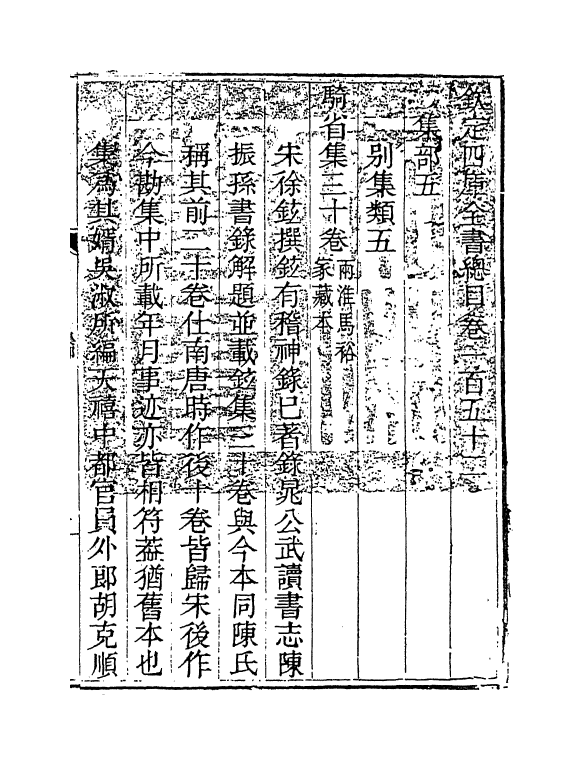 欽定四庫全書總目卷一百五十二
集部五
別集類五
騎省集三十卷兩淮馬裕家藏本
宋徐鉉撰鉉有稽神錄已著錄晁公武讀書志陳
振孫書錄解題並載鉉集三十卷與今本同陳氏
稱其前二十卷仕南唐時作後十卷皆歸宋後作
今勘集中所載年月事迹亦皆相符葢猶舊本也
集為其婿吳淑所編天禧中都官員外郎胡克順